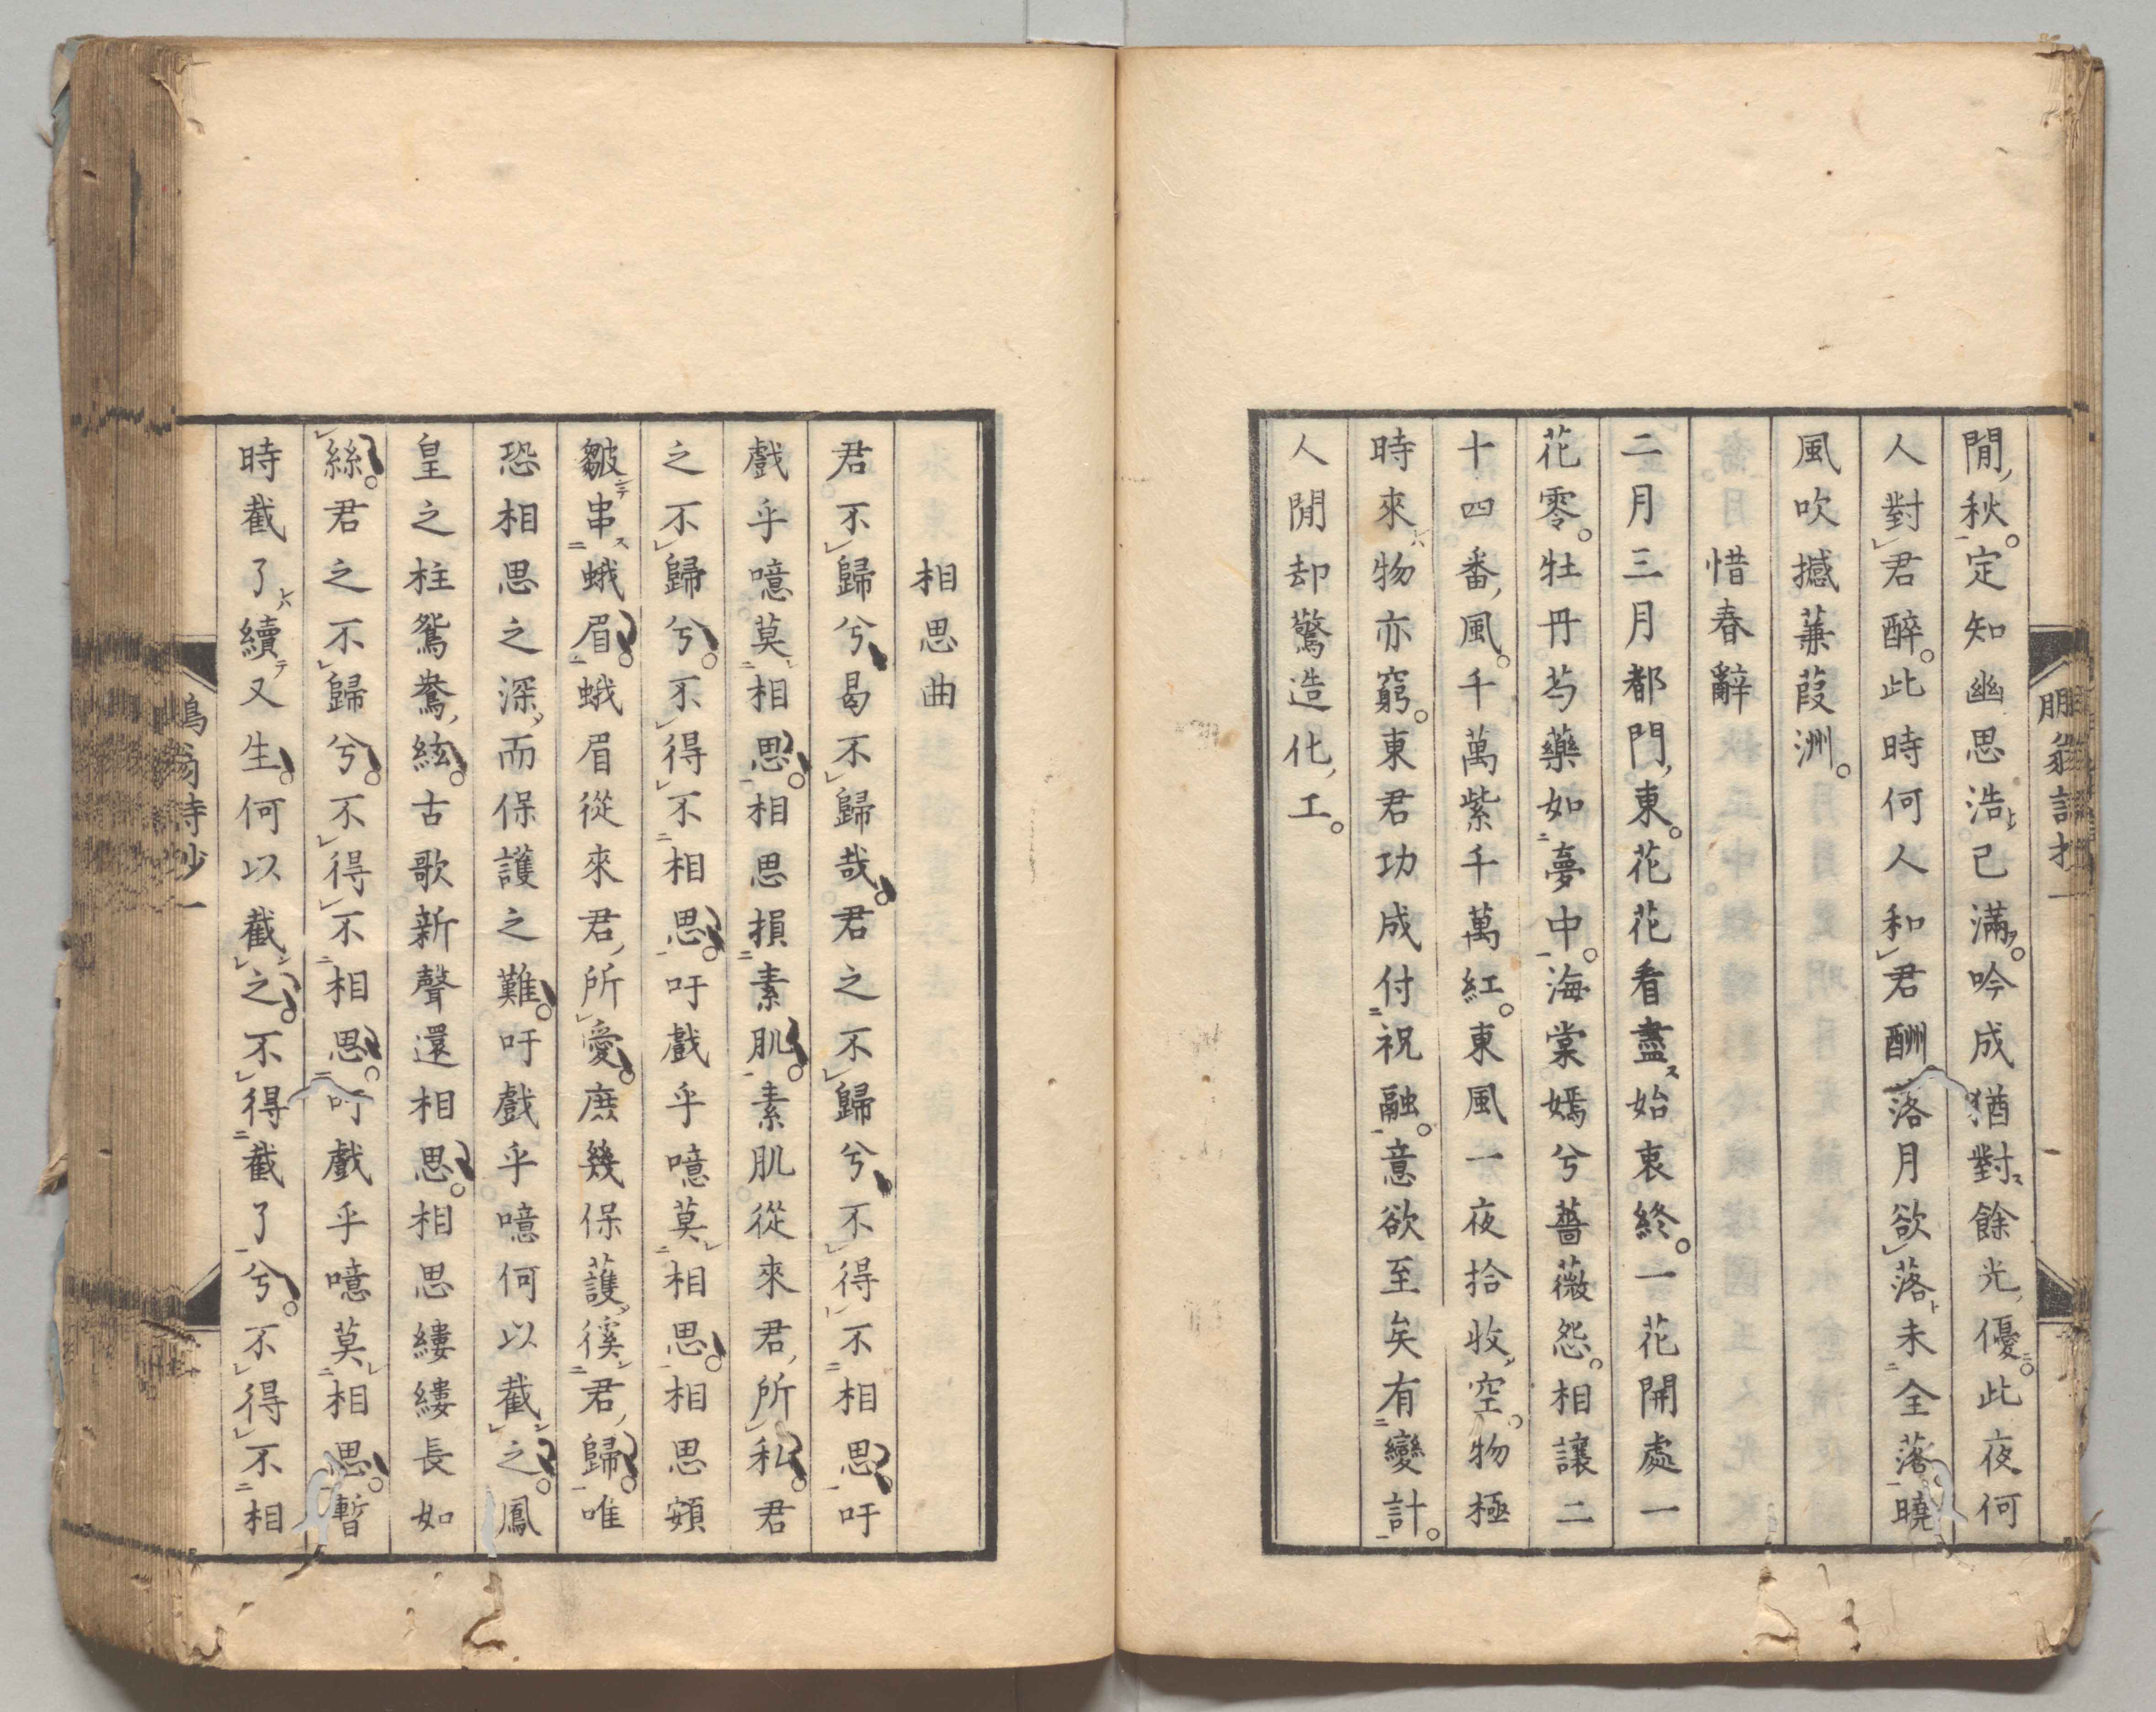 閒秋定知幽思浩已滿吟成猶對餘光優此夜何
人對君醉此時何人和君酬落月欲落未全落曉
風吹撼蒹葭洲
惜春辭
二月三月都門東花花看盡始衷終一花開處一
花零牡丹芍藥如夢中海棠嫣兮薔薇怨相讓二
十四番風千萬紫千萬紅東風一夜拾收空物極
時來物亦窮東君功成付祝融意欲至矣有變計
人閒却驚造化工
相思曲
君不歸兮曷不歸哉君之不歸兮不得不相思吁
戲乎噫莫相思相思損素肌素肌從來君所私君
之不歸兮不得不相思吁戲乎噫莫相思相思頞
皺串蛾眉蛾眉從來君所愛庶幾保護徯君歸唯
恐相思之深而保護之難吁戲乎噫何以截之鳳
皇之柱鴛鴦絃古歌新聲還相思相思縷縷長如
絲君之不歸兮不得不相思吁戲乎噫莫相思暫
時截了續又生何以截之不得截了兮不得不相
鳴翁詩抄一